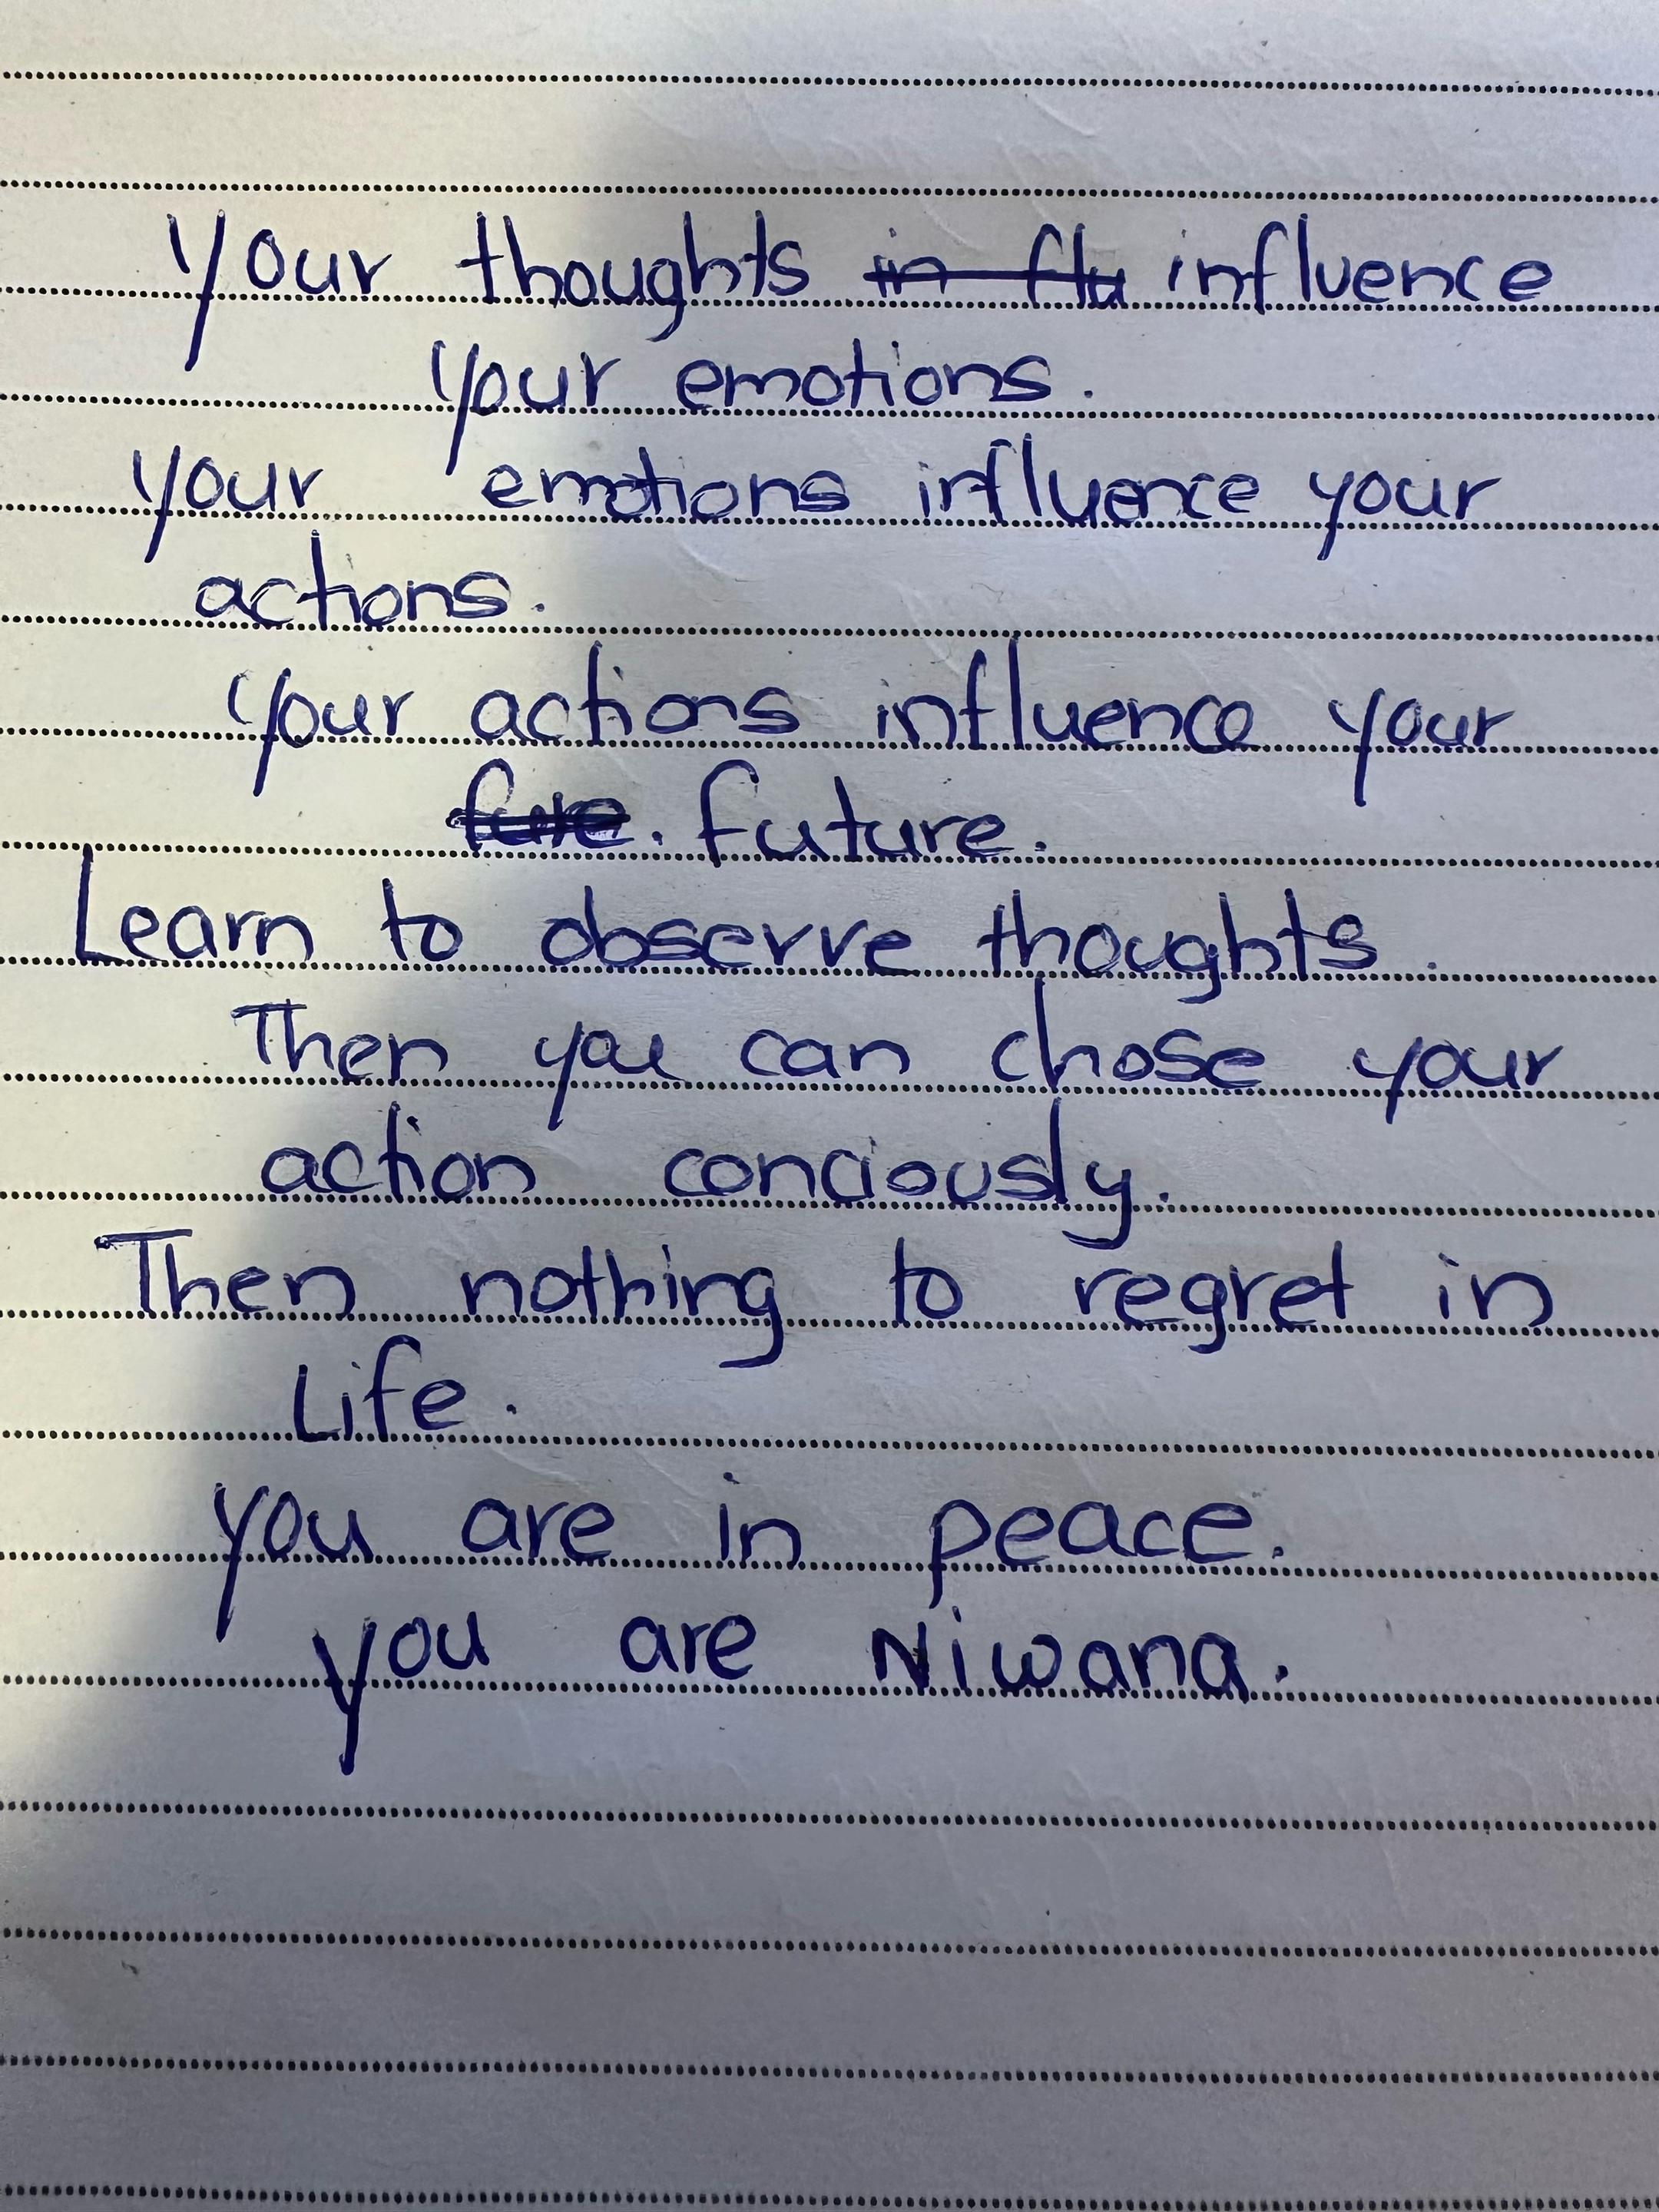 Your thoughts in flu influence
your emotions.
your emotions influence your
actions.
your actions influence your
fure. future.
Learn to observe thoughts.
Then you can chose your
action conciously.
Then nothing to regret in
Life.
you are in peace.
you are Niwana.